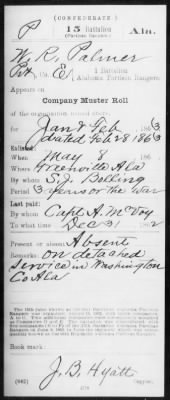 (CONFEDERATE)
P 15 Battalion Ala.
(Partisan Rangers.)
W. R. Palmer
Pvt Co. E, 1 Battalion
Alabama Partisan Rangers.
Appears on
Company Muster Roll
of the organization named above,
for Jan & Feb 1863
dated Feb 28 1863
Enlisted:
When May 8 186
Where Greenville Ala
By whom S. J. Bolling
Period 3 years or the War
Last paid:
By whom Capt A. McVoy
To what time Dec 31 1862
Present or absent Absent
Remarks: on detached
service in Washington
Co Ala
Book mark:
J. B. Hyatt
(642) Copyist.